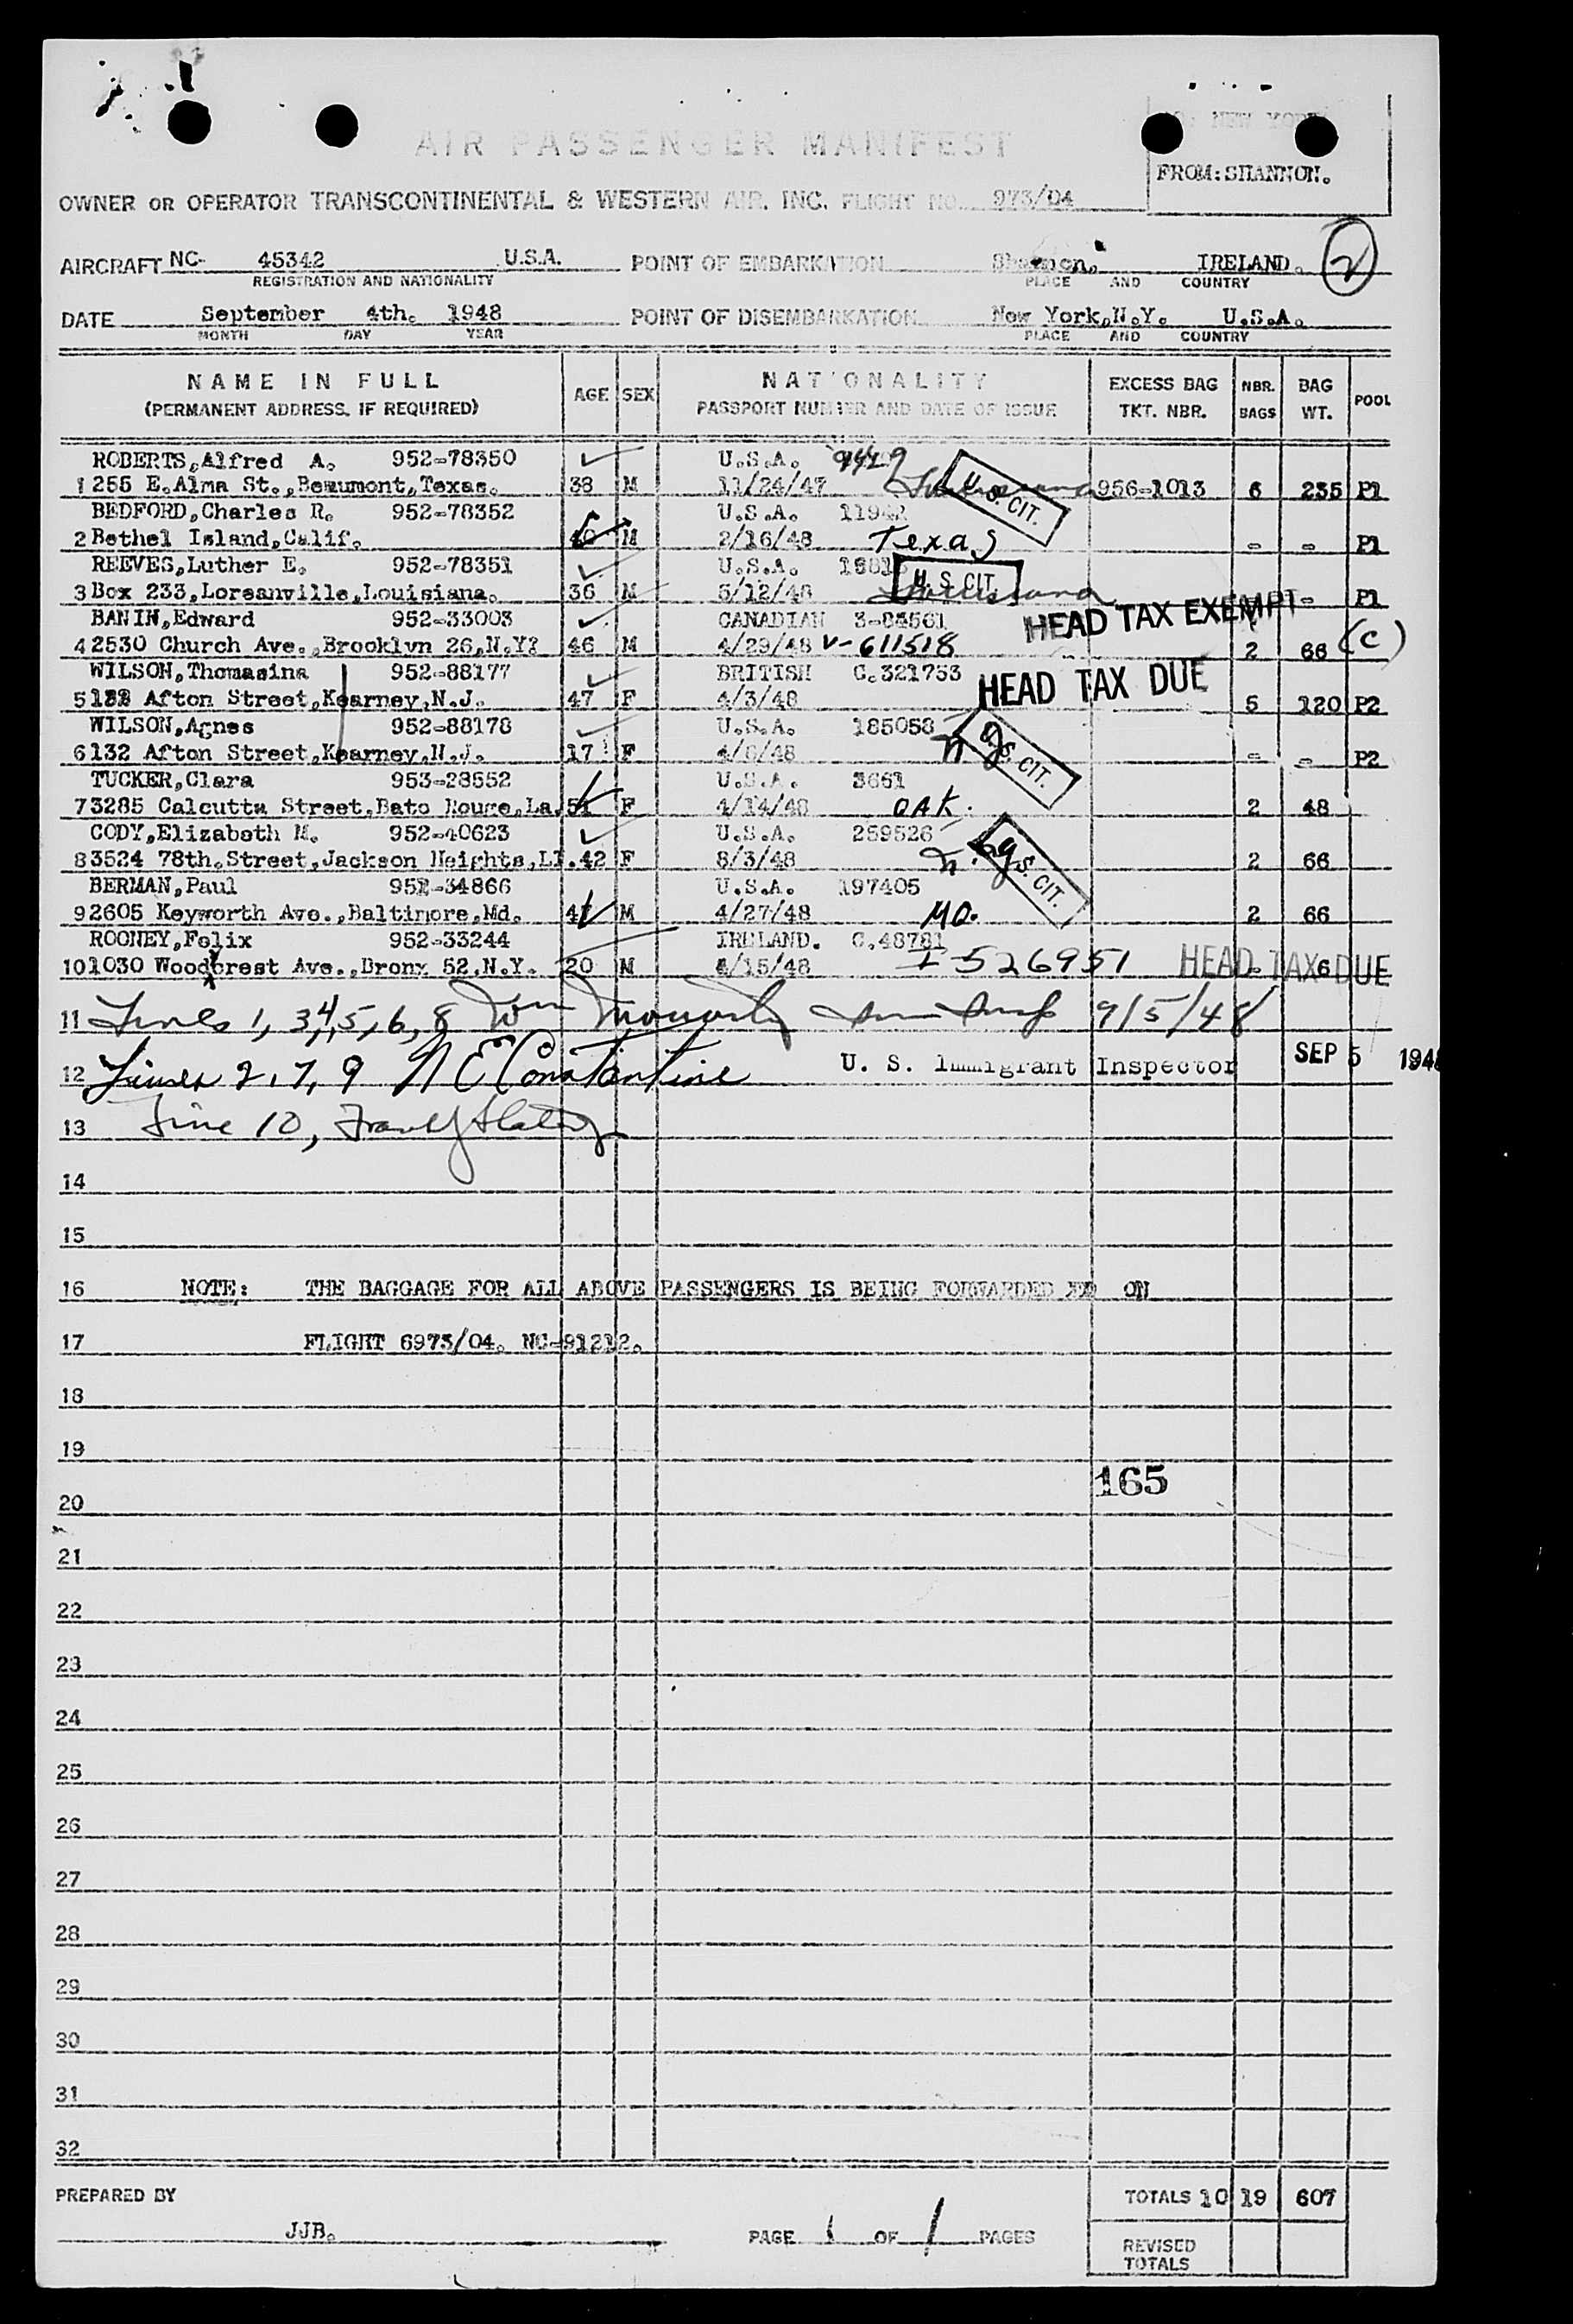 AIR PASSENGER MANIFEST
TO: NEW YORK
FROM: SHANNON.
OWNER OR OPERATOR TRANSCONTINENTAL & WESTERN AIR. INC. FLIGHT NO. 973/04
AIRCRAFT NC- 45342 U.S.A. POINT OF EMBARKATION Shannon, IRELAND. 2
REGISTRATION AND NATIONALITY PLACE AND COUNTRY
DATE September 4th. 1948 POINT OF DISEMBARKATION New York,N.Y. U.S.A.
MONTH DAY YEAR PLACE AND COUNTRY
NAME IN FULL AGE SEX NATIONALITY EXCESS BAG NBR. BAG POOL
(PERMANENT ADDRESS, IF REQUIRED) PASSPORT NUMBER AND DATE OF ISSUE TKT. NBR. BAGS WT.
ROBERTS,Alfred A. 952-78350 U.S.A.
1 255 E.Alma St.,Beaumont,Texas. 38 M 11/24/47 U.S. CIT. 956-1013 6 235 P1
BEDFORD,Charles R. 952-78352 U.S.A. 11942
2 Bethel Island,Calif. M 2/16/48 Texas - - P1
REEVES,Luther E. 952-78351 U.S.A.
3 Box 233,Loreanville,Louisiana. 36 M 5/12/48 U.S. CIT. Louisiana - - P1
BANIN,Edward 952-33003 CANADIAN HEAD TAX EXEMPT
4 2530 Church Ave.,Brooklyn 26,N.Y? 46 M 4/29/48 V-611518 2 66 (C)
WILSON,Thomasina 952-88177 BRITISH C.321753 HEAD TAX DUE
5 132 Afton Street,Kearney,N.J. 47 F 4/3/48 5 120 P2
WILSON,Agnes 952-88178 U.S.A. 185058
6 132 Afton Street,Kearney,N.J. 17 F 4/6/48 U.S. CIT. - - P2
TUCKER,Clara 953-28552 U.S.A. 3661
7 3285 Calcutta Street,Bato Rouge,La. 51 F 4/14/48 OAK. 2 48
CODY,Elizabeth M. 952-40623 U.S.A. 259526
8 3524 78th.Street,Jackson Heights,LI. 42 F 8/3/48 U.S. CIT. 2 66
BERMAN,Paul 952-34866 U.S.A. 197405
9 2605 Keyworth Ave.,Baltimore,Md. M 4/27/48 MD. 2 66
ROONEY,Felix 952-33244 IRELAND. C.48781
10 1030 Woodcrest Ave.,Bronx 52,N.Y. 20 M I-526951 HEAD TAX DUE 6
11 Lines 1, 3,4,5,6,8 9/5/48
12 Lines 2,7,9 N E Constantine U. S. Immigrant Inspector SEP 5 1948
13 Line 10,
14
15
16 NOTE: THE BAGGAGE FOR ALL ABOVE PASSENGERS IS BEING FORWARDED ON
17 FLIGHT 6973/04. NC-91212.
18
19
165
20
21
22
23
24
25
26
27
28
29
30
31
32
PREPARED BY TOTALS 10 19 607
JJB.
PAGE 1 OF 1 PAGES
REVISED
TOTALS